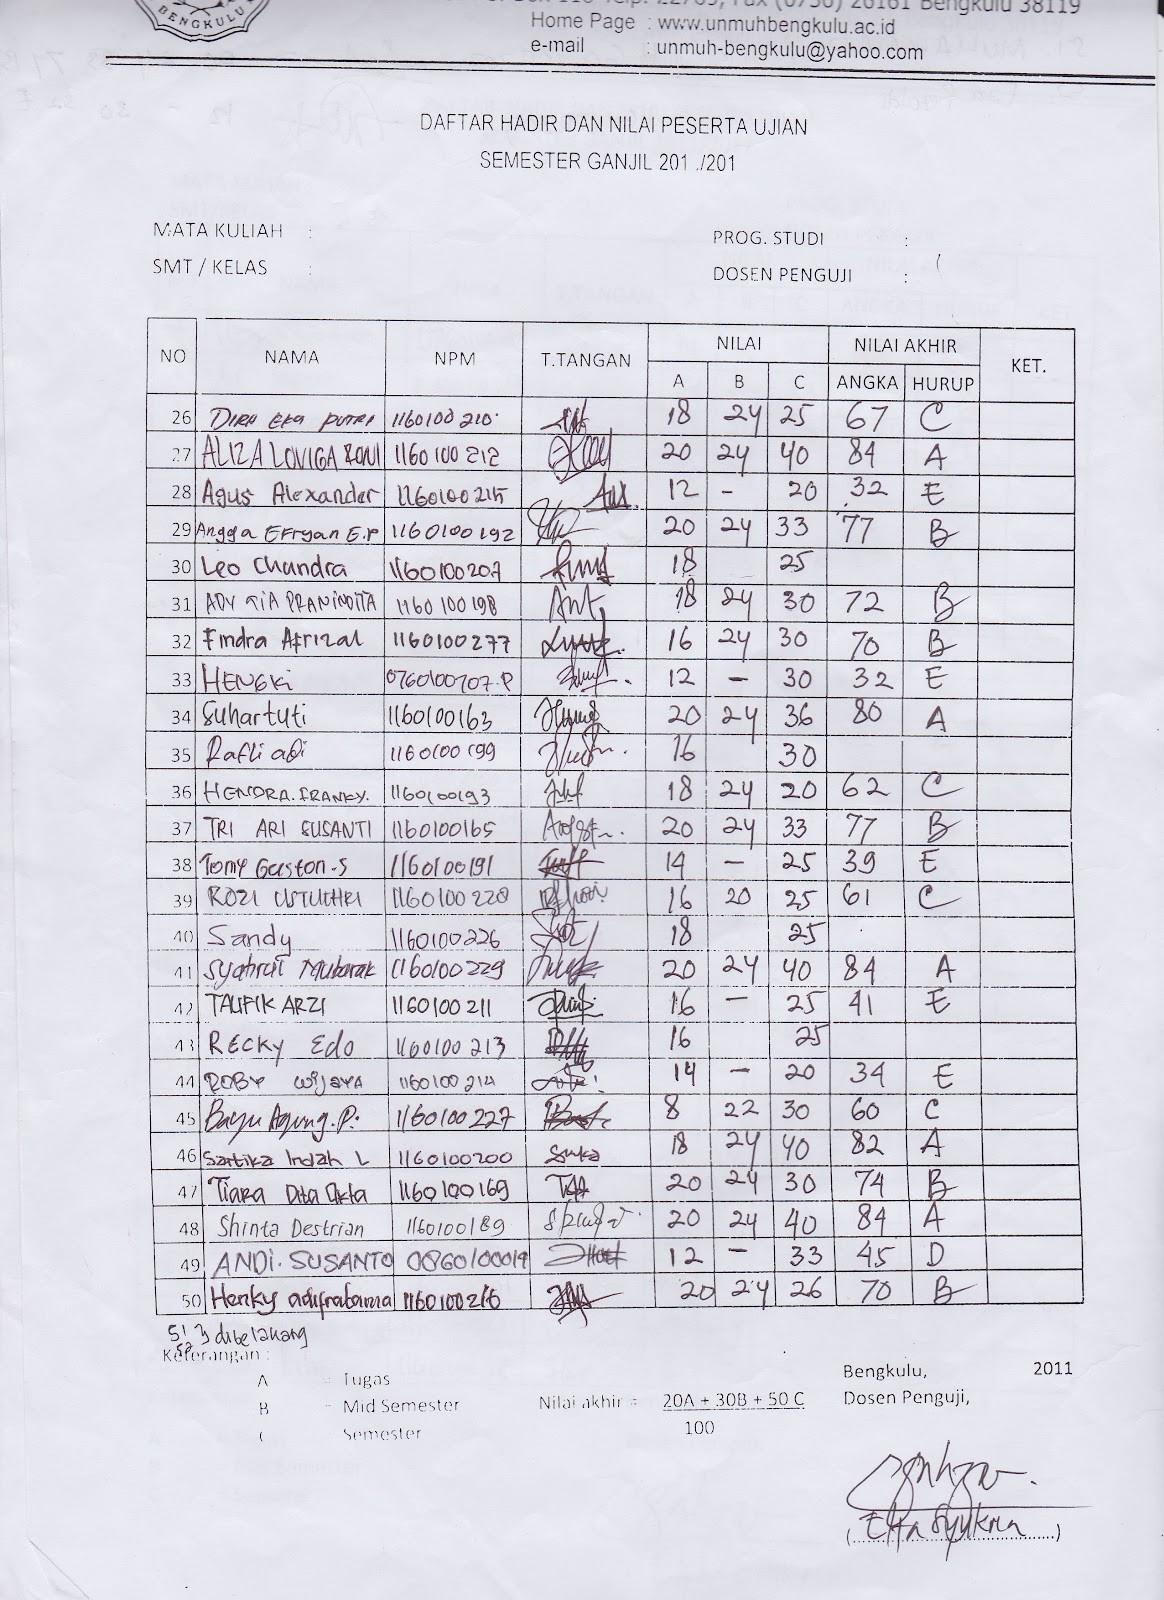 BENGKULU
Bengkulu 38119
Home Page : www.unmuhbengkulu.ac.id
e-mail : unmuh-bengkulu@yahoo.com
DAFTAR HADIR DAN NILAI PESERTA UJIAN
SEMESTER GANJIL 201 ./201
MATA KULIAH :
PROG. STUDI :
SMT / KELAS :
DOSEN PENGUJI :
NO NAMA NPM T.TANGAN NILAI NILAI AKHIR KET.
A B C ANGKA HURUP
26 DIRA EKA PUTRI 1160100210 18 24 25 67 C
27 ALIZA LOVIGA RONI 1160100212 20 24 40 84 A
28 Agus Alexander 1160100215 12 - 20 32 E
29 Angga EFryan E.P 1160100192 20 24 33 77 B
30 Leo Chandra 1160100207 18 25
31 ADV TIA PRANINDITA 1160100198 18 24 30 72 B
32 Endra Afrizal 1160100277 16 24 30 70 B
33 HENGKi 0760100707.P 12 - 30 32 E
34 Suhartuti 1160100163 20 24 36 80 A
35 Rafli adi 1160100199 16 30
36 HENDRA.FRANKY. 1160100193 18 24 20 62 C
37 TRI ARI SUSANTI 1160100165 20 24 33 77 B
38 Tomy Gaston.S 1160100191 14 - 25 39 E
39 ROZI 1160100220 16 20 25 61 C
40 Sandy 1160100226 18 25
41 Syahrul Mubarak 1160100229 20 24 40 84 A
42 TAUFIK ARZI 1160100211 16 - 25 41 E
43 RECKY Edo 1160100213 16 25
44 ROBY WIJAYA 1160100214 14 - 20 34 E
45 Bayu Agung.P. 1160100227 8 22 30 60 C
46 Sartika Indah L 1160100200 18 24 40 82 A
47 Tiara Dita Okta 1160100169 20 24 30 74 B
48 Shinta Destrian 1160100189 20 24 40 84 A
49 ANDI. SUSANTO 0860100019 12 - 33 45 D
50 Henky adipratama 1160100216 20 24 26 70 B
51 } dibelakang
52
Keterangan :
A = Tugas
B - Mid Semester
C Semester
Nilai akhir = 20A + 30B + 50 C
100
Bengkulu, 2011
Dosen Penguji,
(Elfa Syukria)